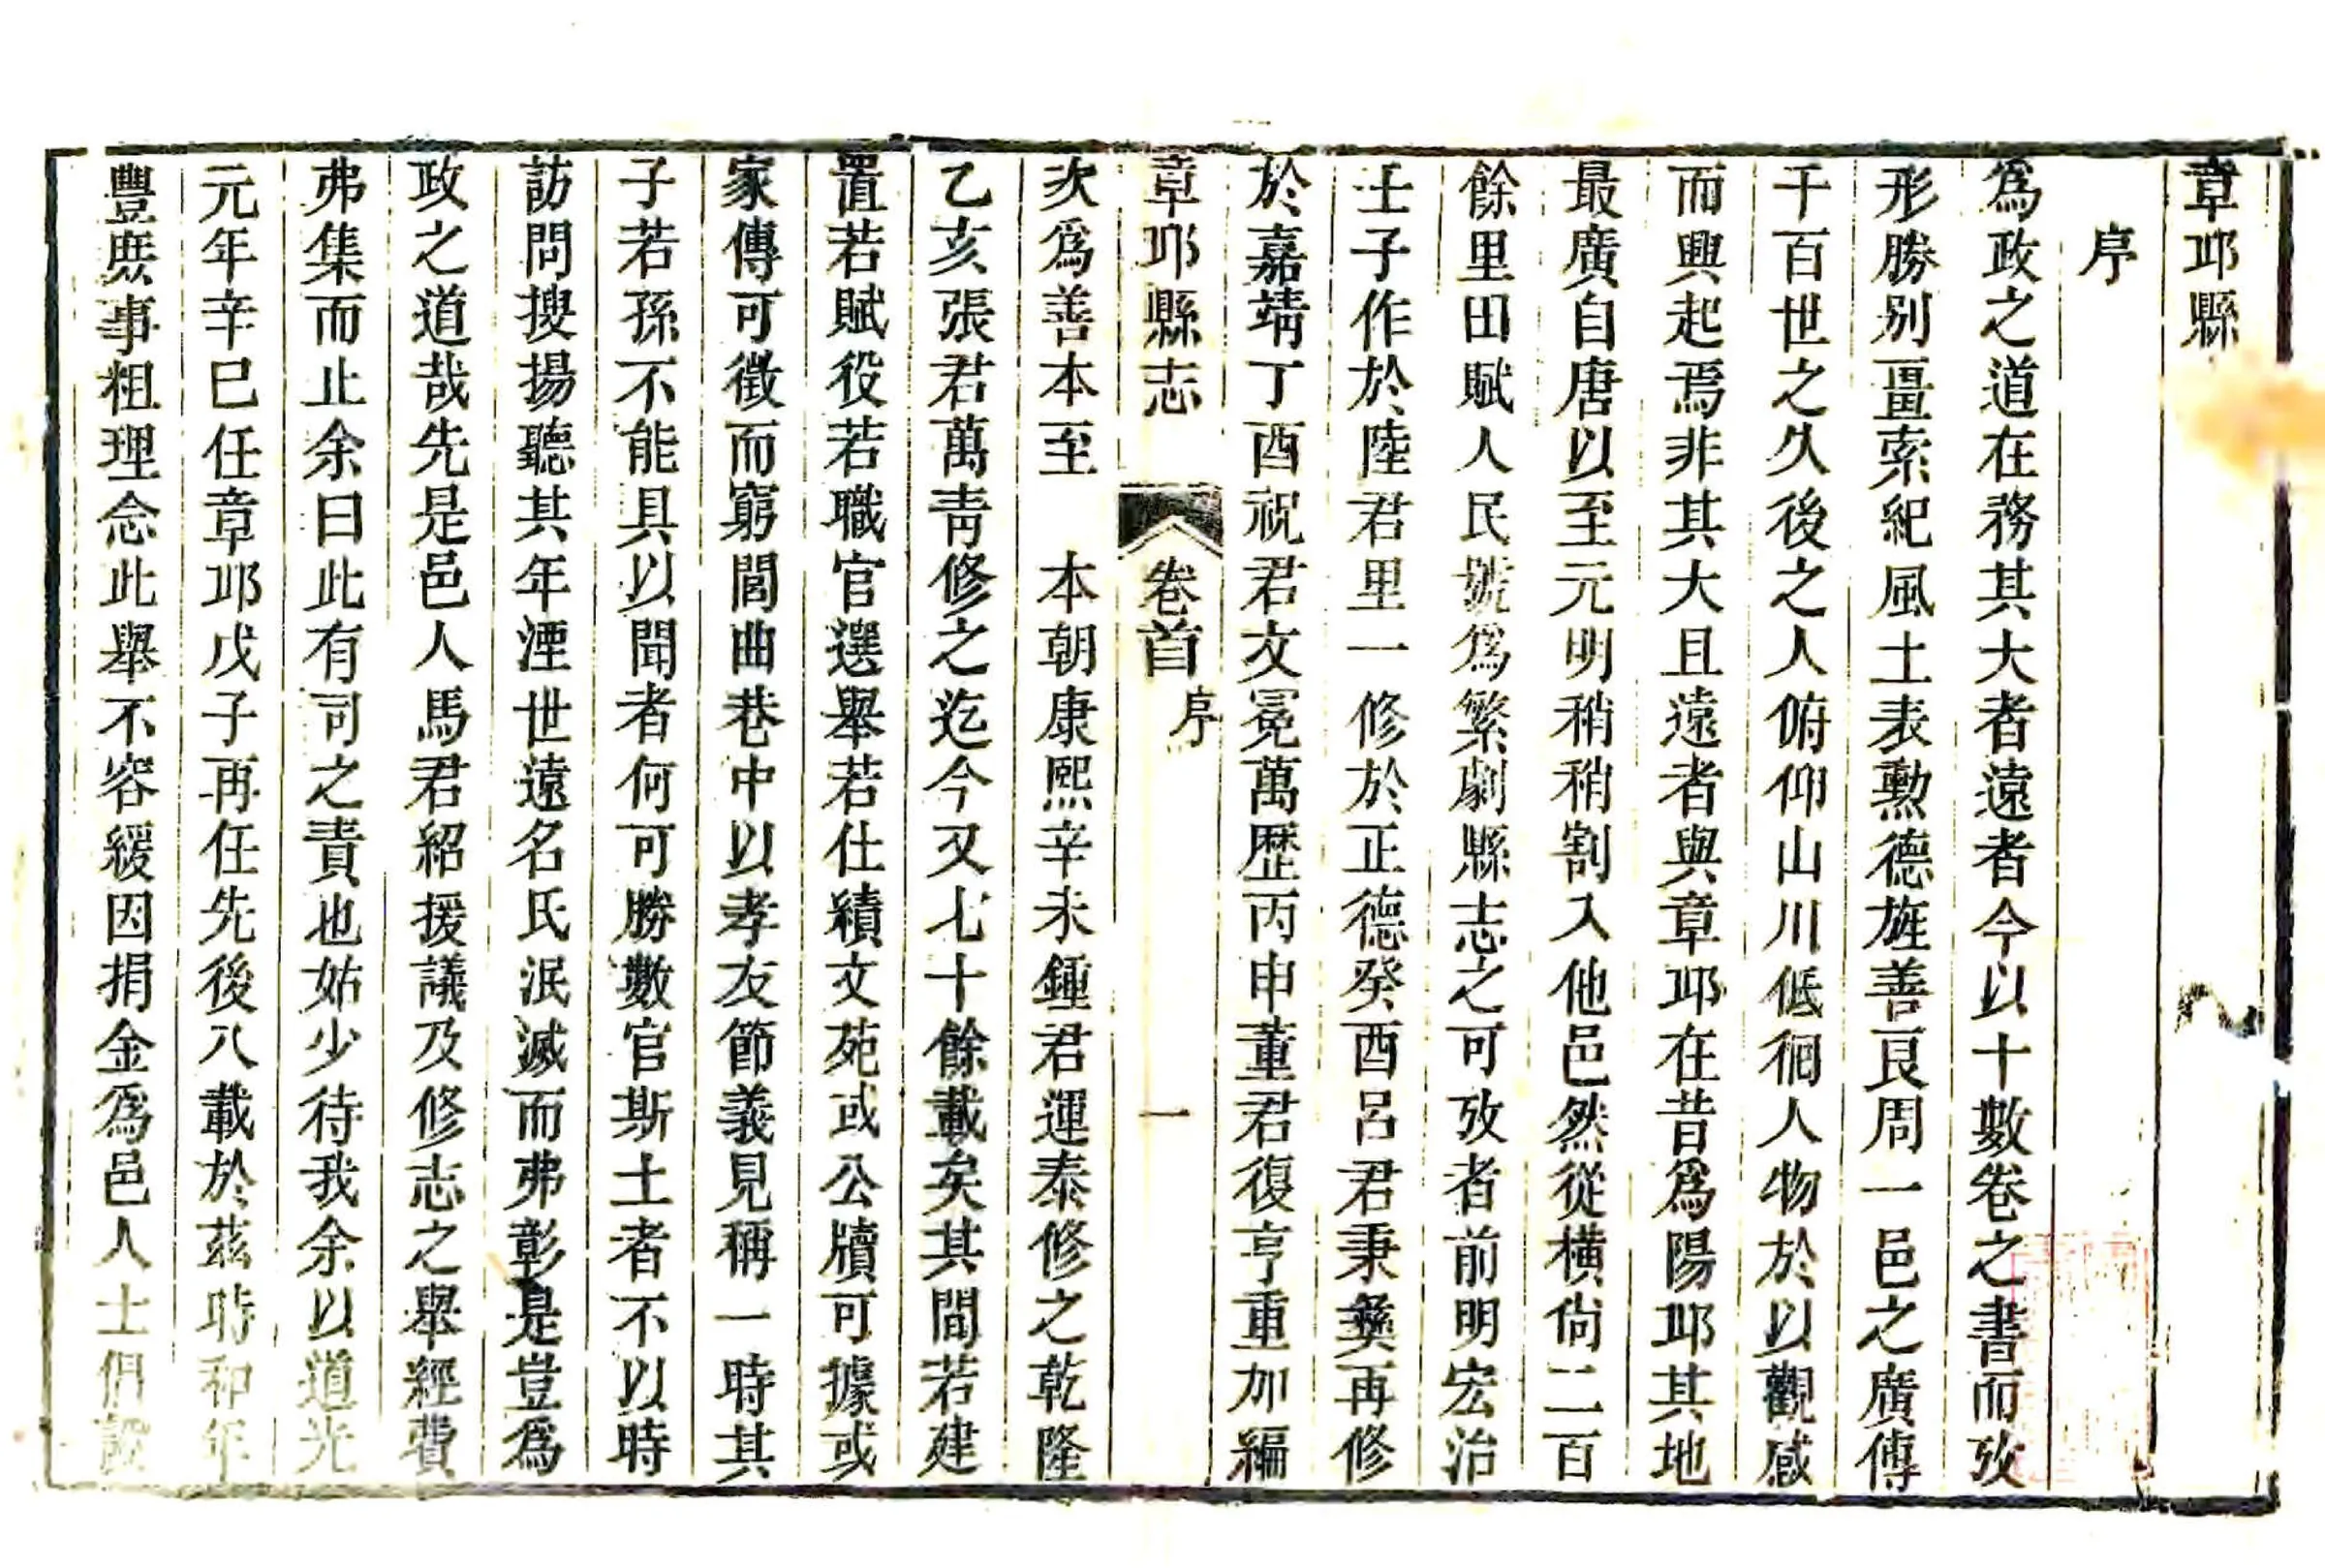 章邱縣
序
為政之道在務其大者遠者今以十數卷之書而攷
形勝别畺索紀風土表勲德旌善良周一邑之廣傳
千百世之久後之人俯仰山川低徊人物於以觀感
而興起焉非其大且遠者與章邱在昔為陽邱其地
最廣自唐以至元明稍稍割入他邑然從橫尙二百
餘里田賦人民號為繁劇縣志之可攷者前明宏治
壬子作於陸君里一修於正德癸酉呂君秉彝再修
於嘉靖丁酉祝君文冕萬歴丙申董君復亨重加編
章邱縣志 卷首 序 一
次為善本至 本朝康熙辛未鍾君運泰修之乾隆
乙亥張君萬靑修之迄今又七十餘載矣其間若建
置若賦役若職官選舉若仕績文苑或公牘可據或
家傳可徵而窮閭曲巷中以孝友節義見稱一時其
子若孫不能具以聞者何可勝數官斯土者不以時
訪問搜揚聽其年湮世遠名氏泯滅而弗彰是豈為
政之道哉先是邑人馬君紹援議及修志之舉經費
弗集而止余曰此有司之責也姑少待我余以道光
元年辛巳任章邱戊子再任先後八載於茲時和年
豐庶事粗理念此舉不容緩因捐金為邑人士倡設